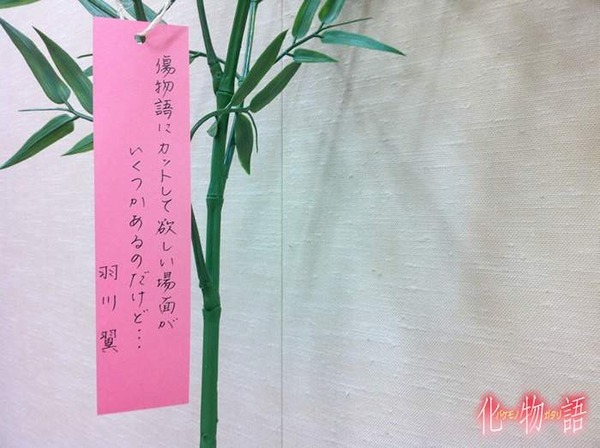 傷物語にカットして欲しい場面が
いくつかあるのだけど・・・
羽川 翼
化物語